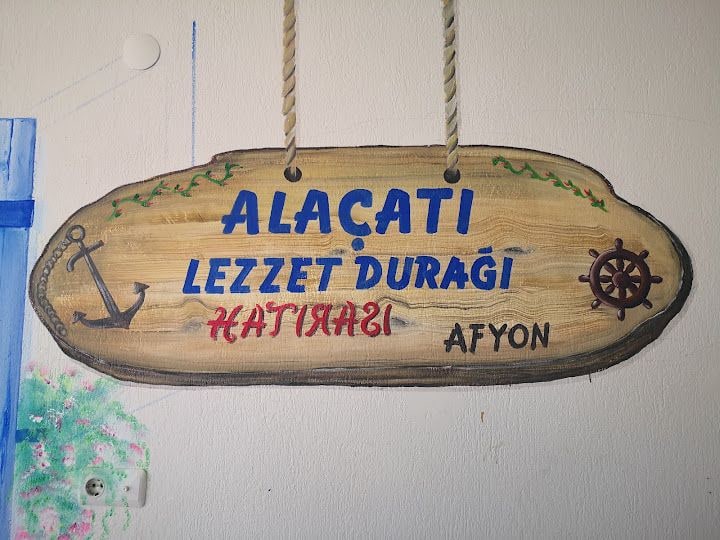 ALAÇATI
LEZZET DURAĞI
HATIRASI
AFYON